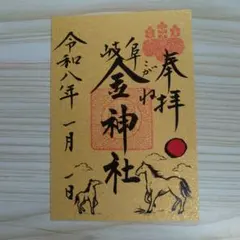 奉拝
岐阜
こがね
金神社
令和八年一月一日